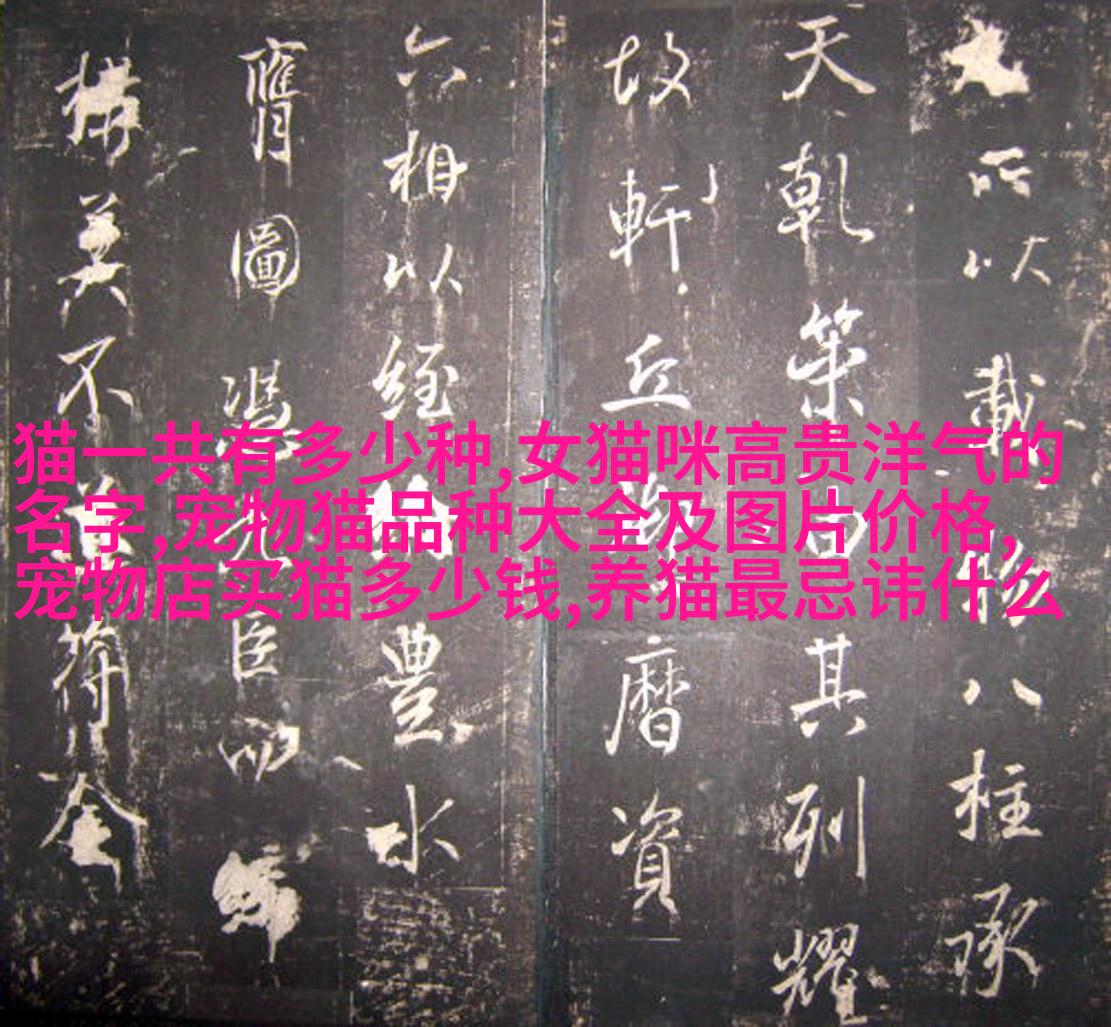 猫一共有多少种,女猫咪高贵洋气的
名字,宠物猫品种大全及图片价格,
宠物店买猫多少钱,养猫最忌讳什么
所以載八柱承
天乾策其列耀
故軒丘曆資
六相以經豐水
膺圖馮臣而締
構不符全